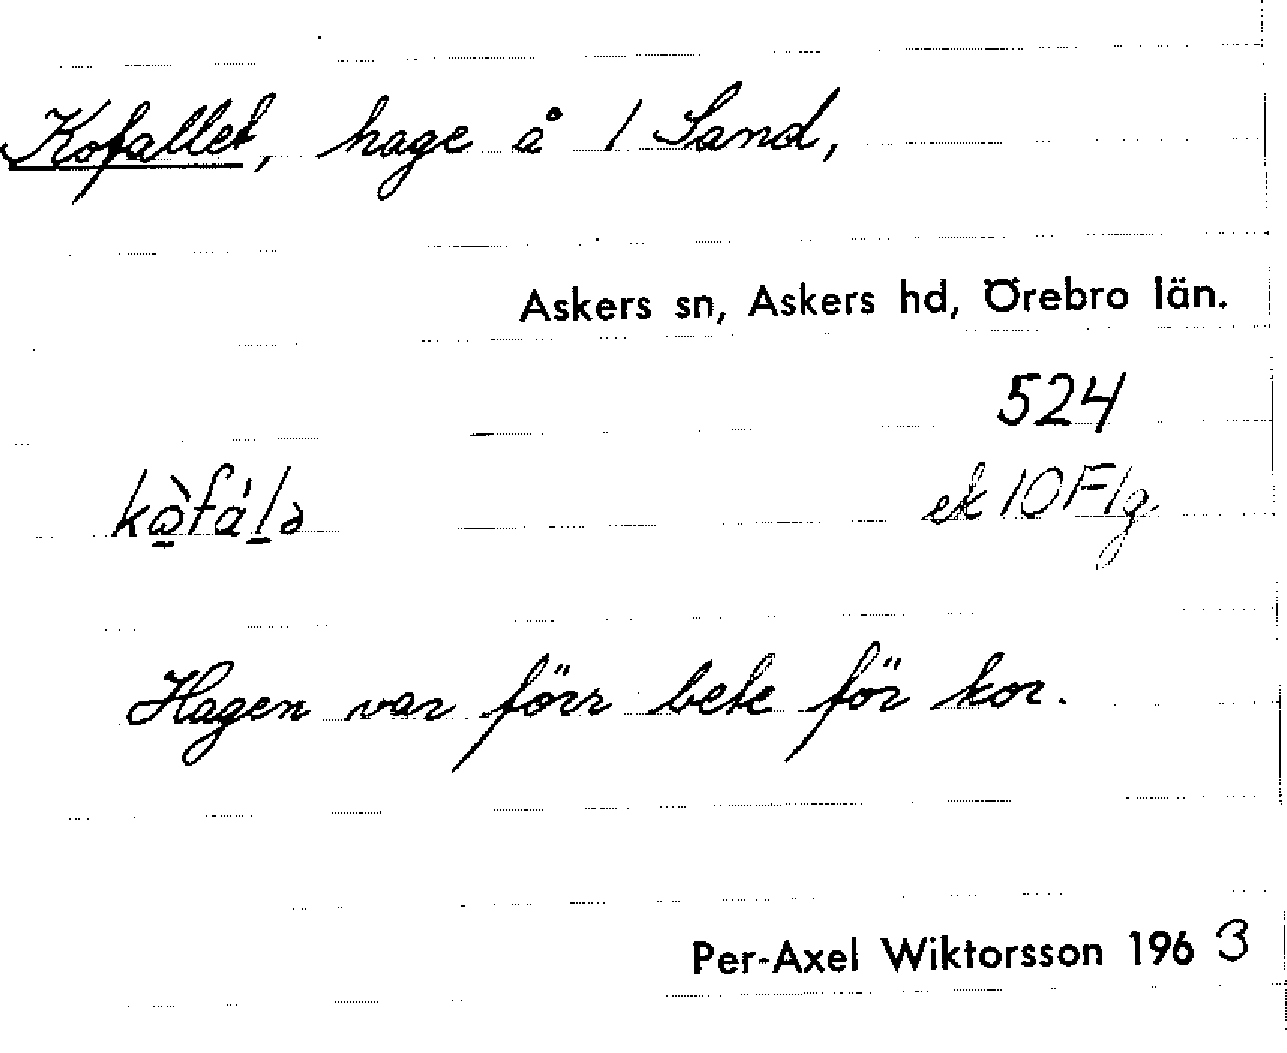 Kofallet, hage å 1 Sand,
Askers sn, Askers hd, Örebro län.
524
kò̱fáḻə
ek 10 F1g
Hagen var förr bete för kor.
Per-Axel Wiktorsson 1963